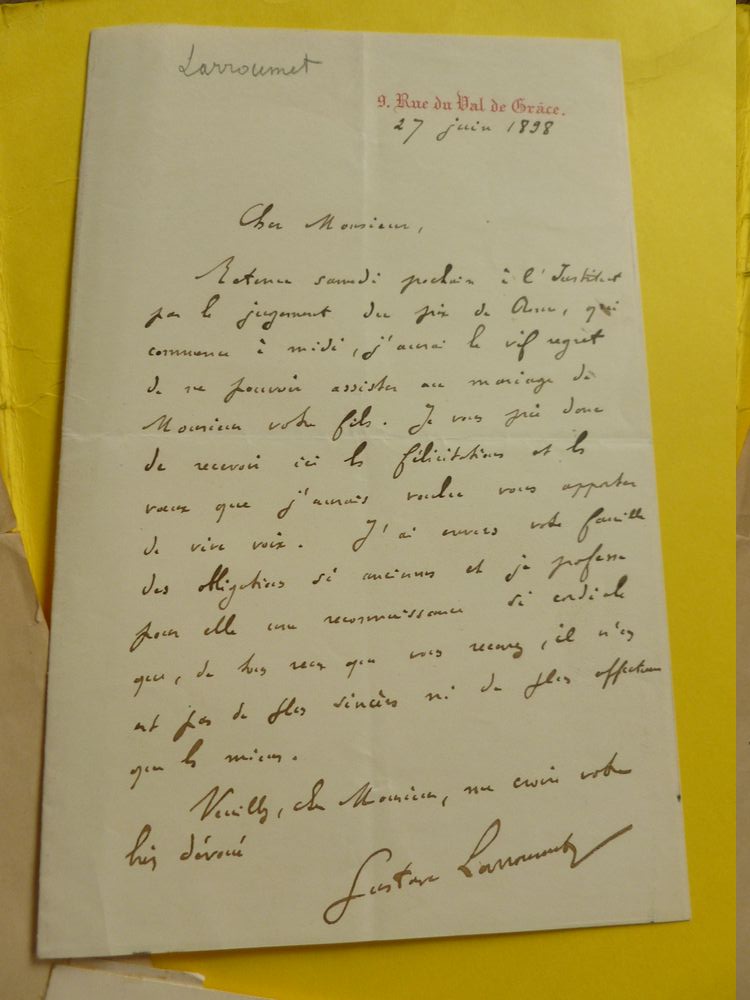 Larroumet
9. Rue du Val de Grâce.
27 juin 1898
Cher Monsieur,
Retenu samedi prochain à l'Institut
par le jugement du prix de Rome, qui
commence à midi, j'aurai le vif regret
de ne pouvoir assister au mariage de
Monsieur votre fils. Je vous prie donc
de recevoir ici les félicitations et les
vœux que j'aurais voulu vous apporter
de vive voix. J'ai envers votre famille
des obligations si anciennes et je professe
pour elle une reconnaissance si cordiale
que, de tous ceux que vous recevrez, il n'en
est pas de plus sincères ni de plus affectueux
que les miens.
Veuillez, cher Monsieur, me croire votre
très dévoué
Gustave Larroumet